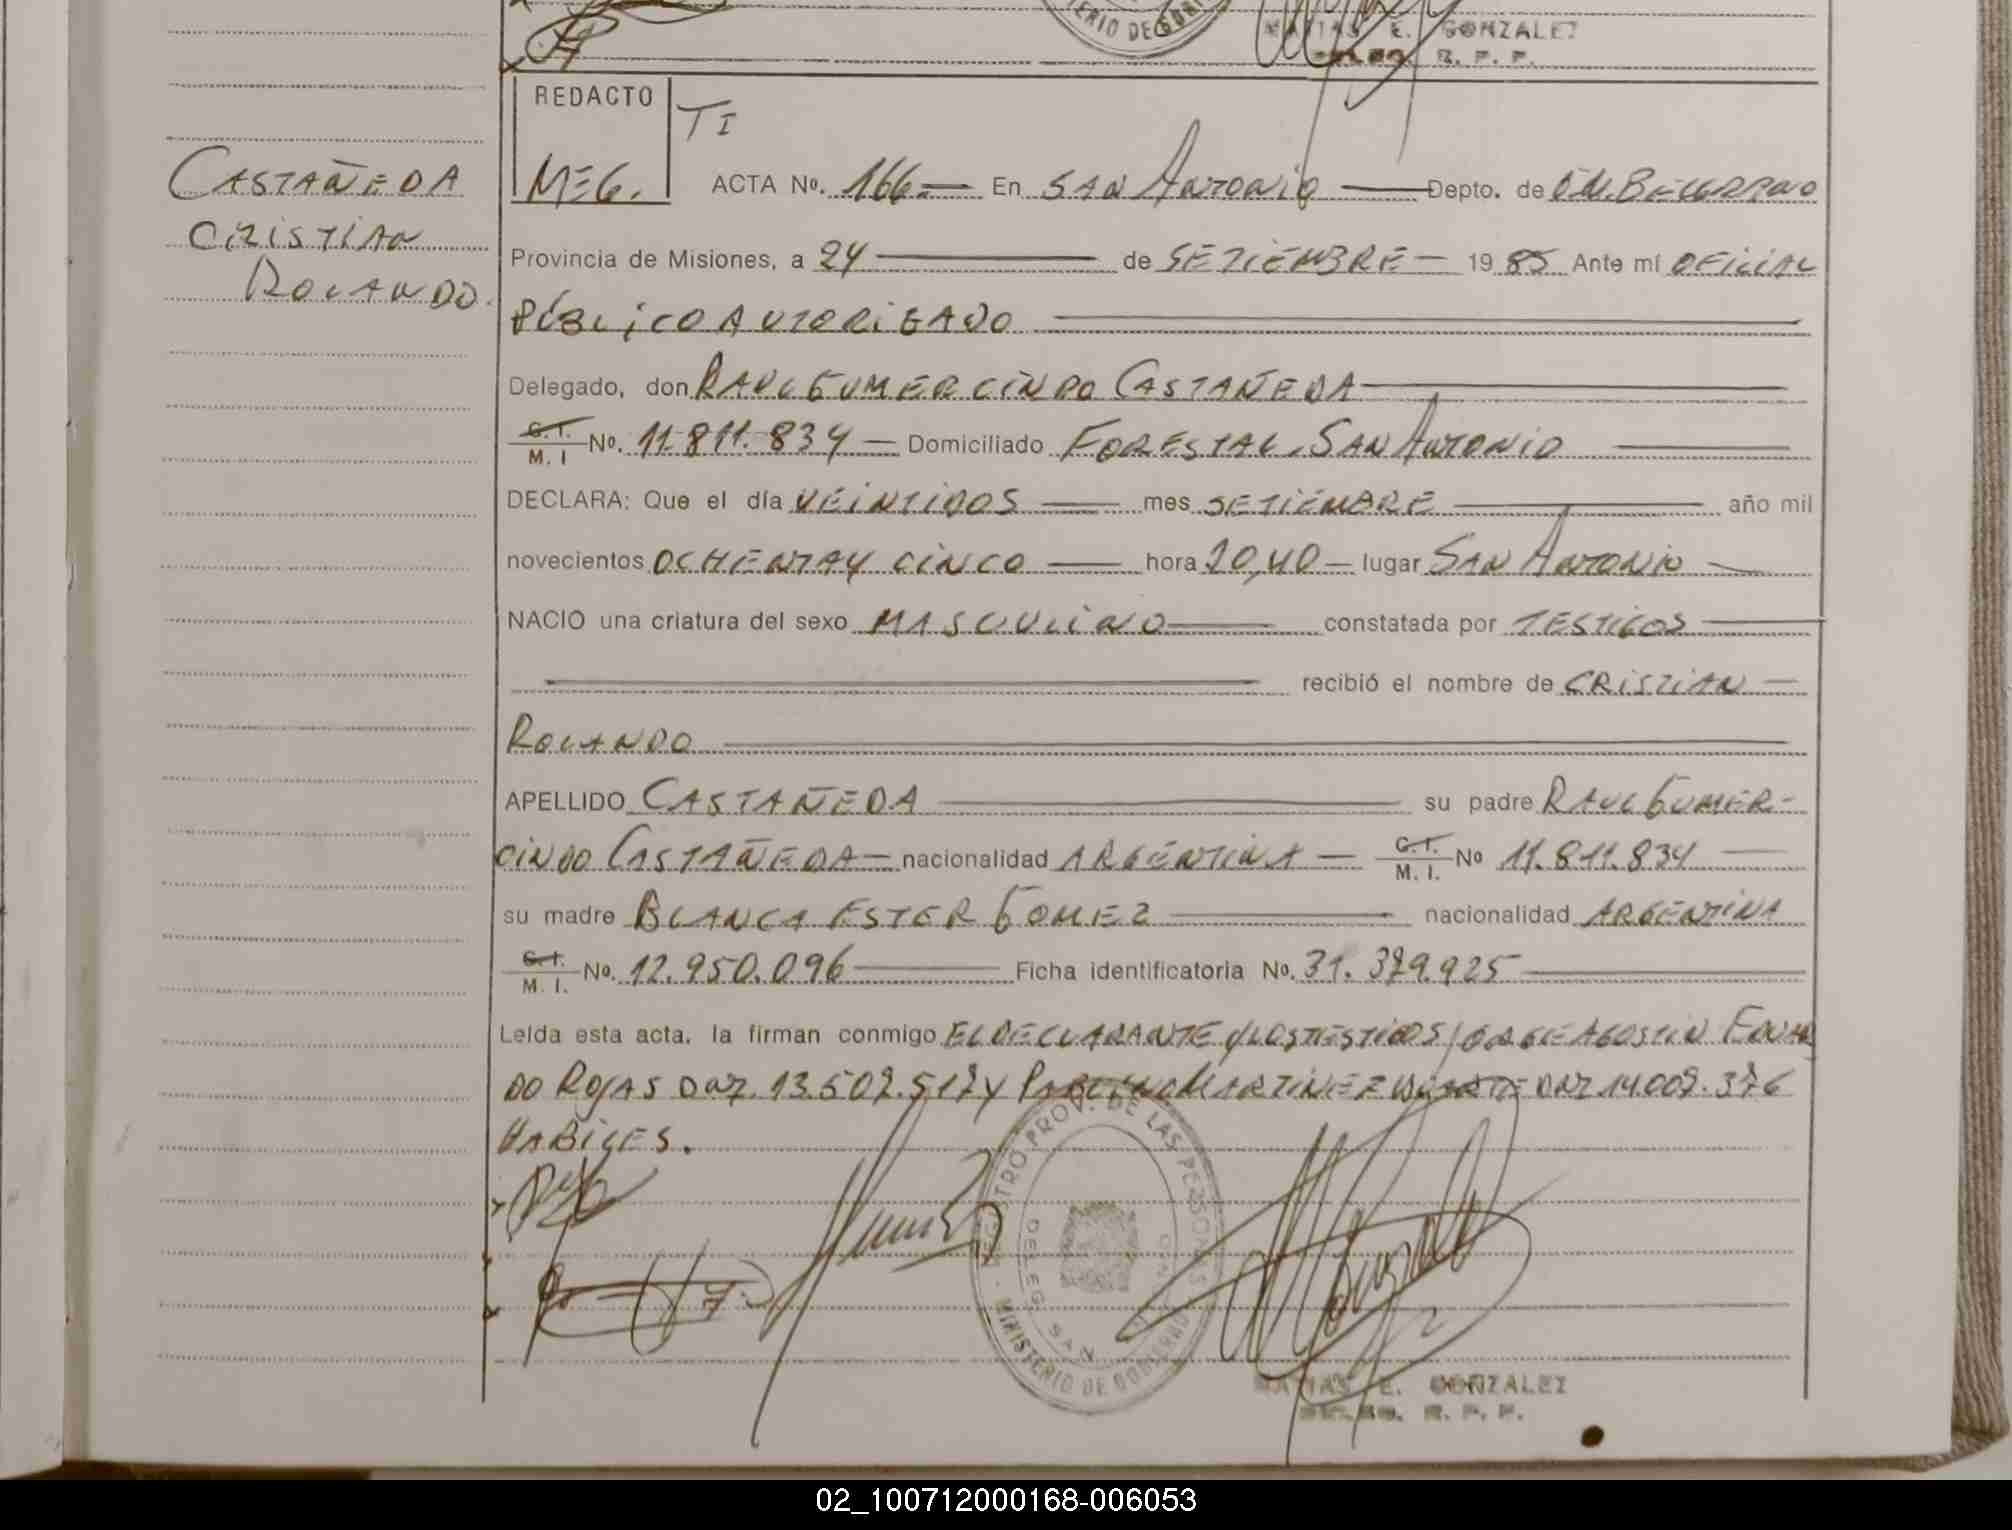 MINISTERIO DE GOBIERNO
MATIAS E. GONZALEZ
R. P. P.
REDACTO
TI
MEG.
ACTA No. 166.— En SAN ANTONIO — Depto. de GM. BELGRANO
CASTAÑEDA
CRISTIAN
ROLANDO.
Provincia de Misiones, a 24 — de SETIEMBRE — 1985 Ante mí OFICIAL
PÚBLICO AUTORIZADO
Delegado, don RAUL GUMERCINDO CASTAÑEDA
C.I.
M. I No. 11.811.834 — Domiciliado FORESTAL. SAN ANTONIO
DECLARA: Que el día VEINTIDOS — mes SETIEMBRE — año mil
novecientos OCHENTA Y CINCO — hora 20,40 — lugar SAN ANTONIO —
NACIO una criatura del sexo MASCULINO — constatada por TESTIGOS —
recibió el nombre de CRISTIAN —
ROLANDO
APELLIDO CASTAÑEDA — su padre RAUL GUMER-
CINDO CASTAÑEDA — nacionalidad ARGENTINA — C.I.
M. I. No 11.811.834 —
su madre BLANCA ESTER GOMEZ — nacionalidad ARGENTINA
C.I.
M. I. No. 12.950.096 — Ficha identificatoria No. 31.379.925 —
Leída esta acta, la firman conmigo EL DECLARANTE Y LOS TESTIGOS JORGE AGOSTIN
DO ROJAS DNI. 13.509.517 Y MARTINEZ DUARTE DNI 14.009.376
HABILES.
REGISTRO PROV. DE LAS PERSONAS
DELEG. SAN
MINISTERIO DE GOBIERNO
MATIAS E. GONZALEZ
R. P. P.
02_100712000168-006053